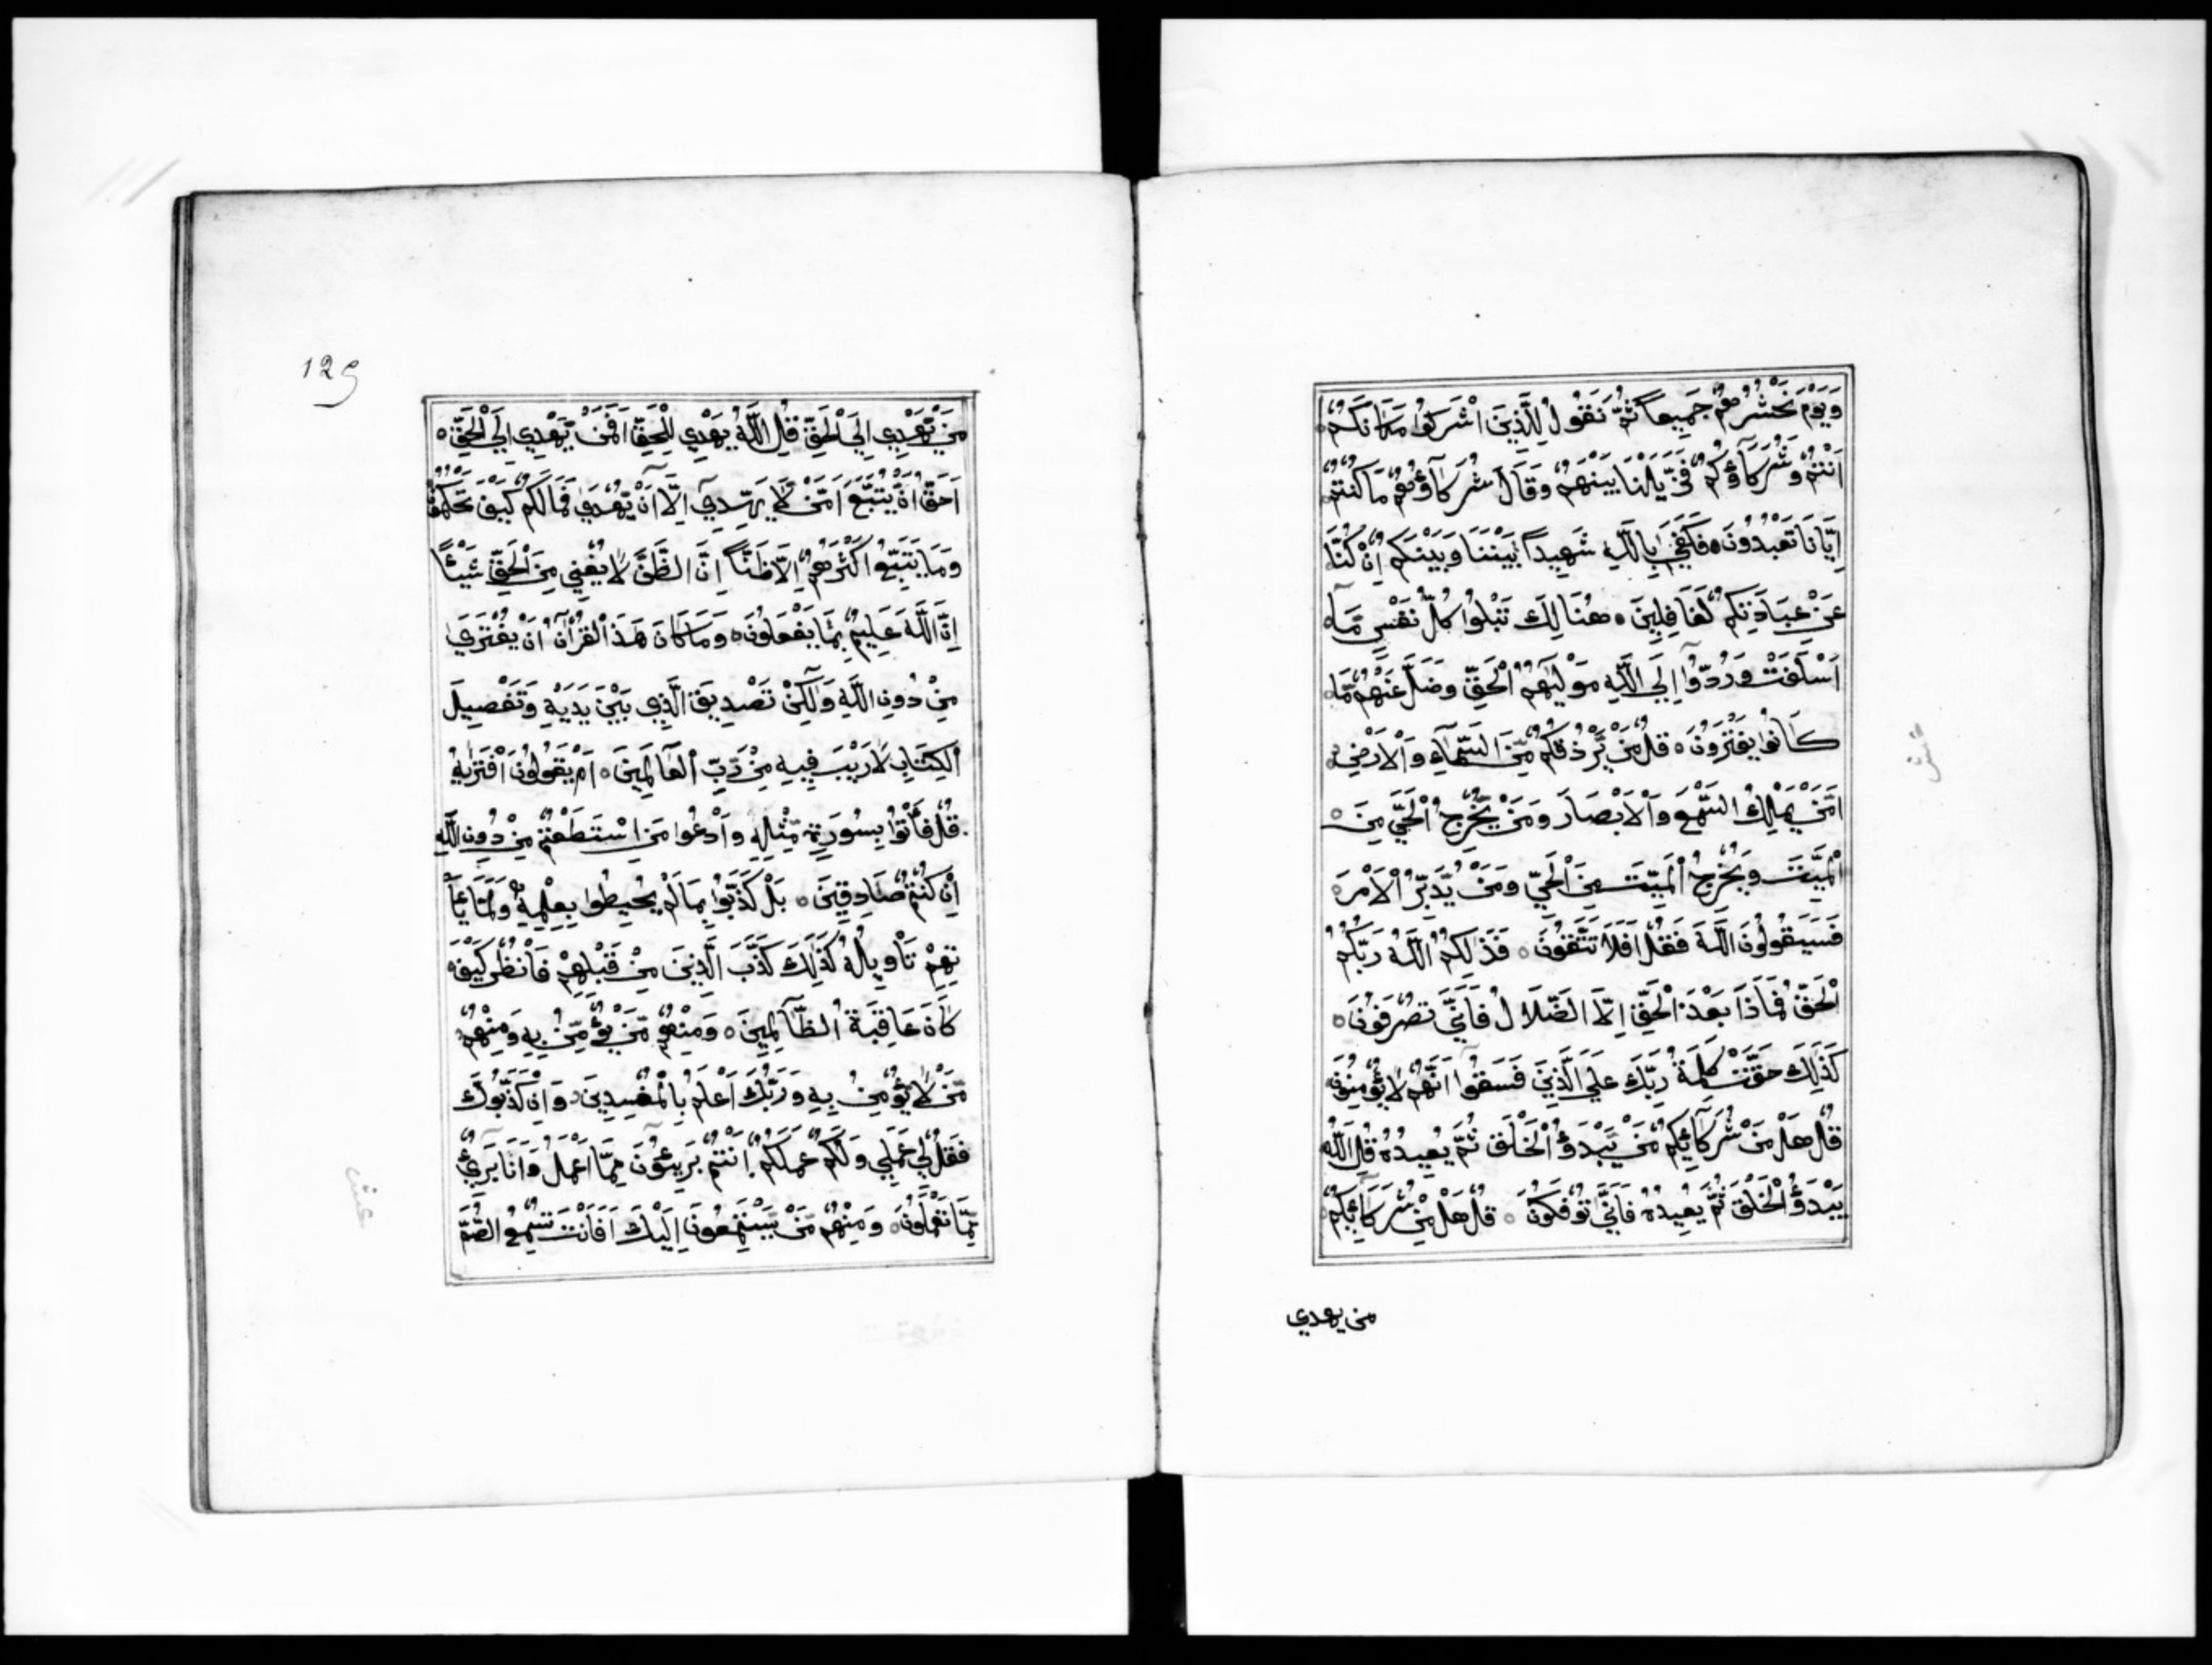 وَيَوْمَ نَحْشُرُهُمْ جَمِيعاً ثُمَّ نَقُولُ لِلَّذِينَ اَشْرَكُوا مَكَانَكُمْ
اَنْتُمْ وَشُرَكَآؤُكُمْ فَزَيَّلْنَا بَيْنَهُمْ وَقَالَ شُرَكَآؤُهُمْ مَا كُنْتُمْ
اِيَّانَا تَعْبُدُونَ ه فَكَفَي بِاللَّهِ شَهِيداً بَيْنَنَا وَبَيْنَكُمْ اِنْ كُنَّا
عَنْ عِبَادَتِكُمْ لَغَافِلِينَ ه هُنَالِكَ تَبْلُوا كُلُّ نَفْسٍ مَّآ
اَسْلَفَتْ وَرُدُّوآ اِلَي اللَّهِ مَوْلَيهُمُ الْحَقِّ وَضَلَّ عَنْهُمْ مَّا
كَانُوا يَفْتَرُونَ ه قُلْ مَنْ يَّرْزُقُكُمْ مِّنَ السَّمَآءِ وَالْاَرْضِ
اَمَّنْ يَمْلِكُ السَّمْعَ وَالْاَبْصَارَ وَمَنْ يُّخْرِجُ الْحَيَّ مِنَ
الْمَيِّتِ وَيُخْرِجُ الْمَيِّتَ مِنَ الْحَيِّ وَمَنْ يُّدَبِّرُ الْاَمْرَ
فَسَيَقُولُونَ اللَّهُ فَقُلْ اَفَلَا تَتَّقُونَ ه فَذَلِكُمُ اللَّهُ رَبُّكُمُ
الْحَقُّ فَمَاذَا بَعْدَ الْحَقِّ اِلَّا الضَّلَالُ فَاَنَّي تُصْرَفُونَ ه
كَذَلِكَ حَقَّتْ كَلِمَةُ رَبِّكَ عَلَي الَّذِينَ فَسَقُوآ اَنَّهُمْ لَا يُؤْمِنُونَ
قُلْ هَلْ مِنْ شُرَكَآئِكُمْ مَّنْ يَّبْدَؤُ الْخَلْقَ ثُمَّ يُعِيدُهُ قُلِ اللَّهُ
يَبْدَؤُ الْخَلْقَ ثُمَّ يُعِيدُهُ فَاَنَّي تُؤْفَكُونَ ه قُلْ هَلْ مِنْ شُرَكَآئِكُمْ
من يهدي
129
مَّنْ يَّهْدِي اِلَي الْحَقِّ قُلِ اللَّهُ يَهْدِي لِلْحَقِّ اَفَمَنْ يَّهْدِي اِلَي الْحَقِّ ه
اَحَقُّ اَنْ يُّتَّبَعَ اَمَّنْ لَّا يَهِدِّي اِلَّآ اَنْ يُّهْدَي فَمَالَكُمْ كَيْفَ تَحْكُمُونَ
وَمَا يَتَّبِعُ اَكْثَرُهُمْ اِلَّا ظَنّاً اِنَّ الظَّنَّ لَا يُغْنِي مِنَ الْحَقِّ شَيْئًا
اِنَّ اللَّهَ عَلِيمٌ بِمَا يَفْعَلُونَ ه وَمَا كَانَ هَذَا الْقُرْآنُ اَنْ يُّفْتَرَي
مِنْ دُونِ اللَّهِ وَلَكِنْ تَصْدِيقَ الَّذِي بَيْنَ يَدَيْهِ وَتَفْصِيلَ
الْكِتَابِ لَا رَيْبَ فِيهِ مِنْ رَّبِّ الْعَالَمِينَ ه اَمْ يَقُولُونَ افْتَرَيهُ
قُلْ فَأْتُوا بِسُورَةٍ مِّثْلِهِ وَادْعُوا مَنِ اسْتَطَعْتُمْ مِّنْ دُونِ اللَّهِ
اِنْ كُنْتُمْ صَادِقِينَ ه بَلْ كَذَّبُوا بِمَا لَمْ يُحِيطُوا بِعِلْمِهِ وَلَمَّا يَأْ
تِهِمْ تَأْوِيلُهُ كَذَلِكَ كَذَّبَ الَّذِينَ مِنْ قَبْلِهِمْ فَانْظُرْ كَيْفَ
كَانَ عَاقِبَةُ الظَّالِمِينَ ه وَمِنْهُمْ مَّنْ يُّؤْمِنُ بِهِ وَمِنْهُمْ
مَّنْ لَّا يُؤْمِنُ بِهِ وَرَبُّكَ اَعْلَمُ بِالْمُفْسِدِينَ ه وَاِنْ كَذَّبُوكَ
فَقُلْ لِّي عَمَلِي وَلَكُمْ عَمَلُكُمْ اَنْتُمْ بَرِيئُونَ مِمَّآ اَعْمَلُ وَاَنَا بَرِيءٌ
مِّمَّا تَعْمَلُونَ ه وَمِنْهُمْ مَّنْ يَّسْتَمِعُونَ اِلَيْكَ اَفَاَنْتَ تُسْمِعُ الصُّمَّ